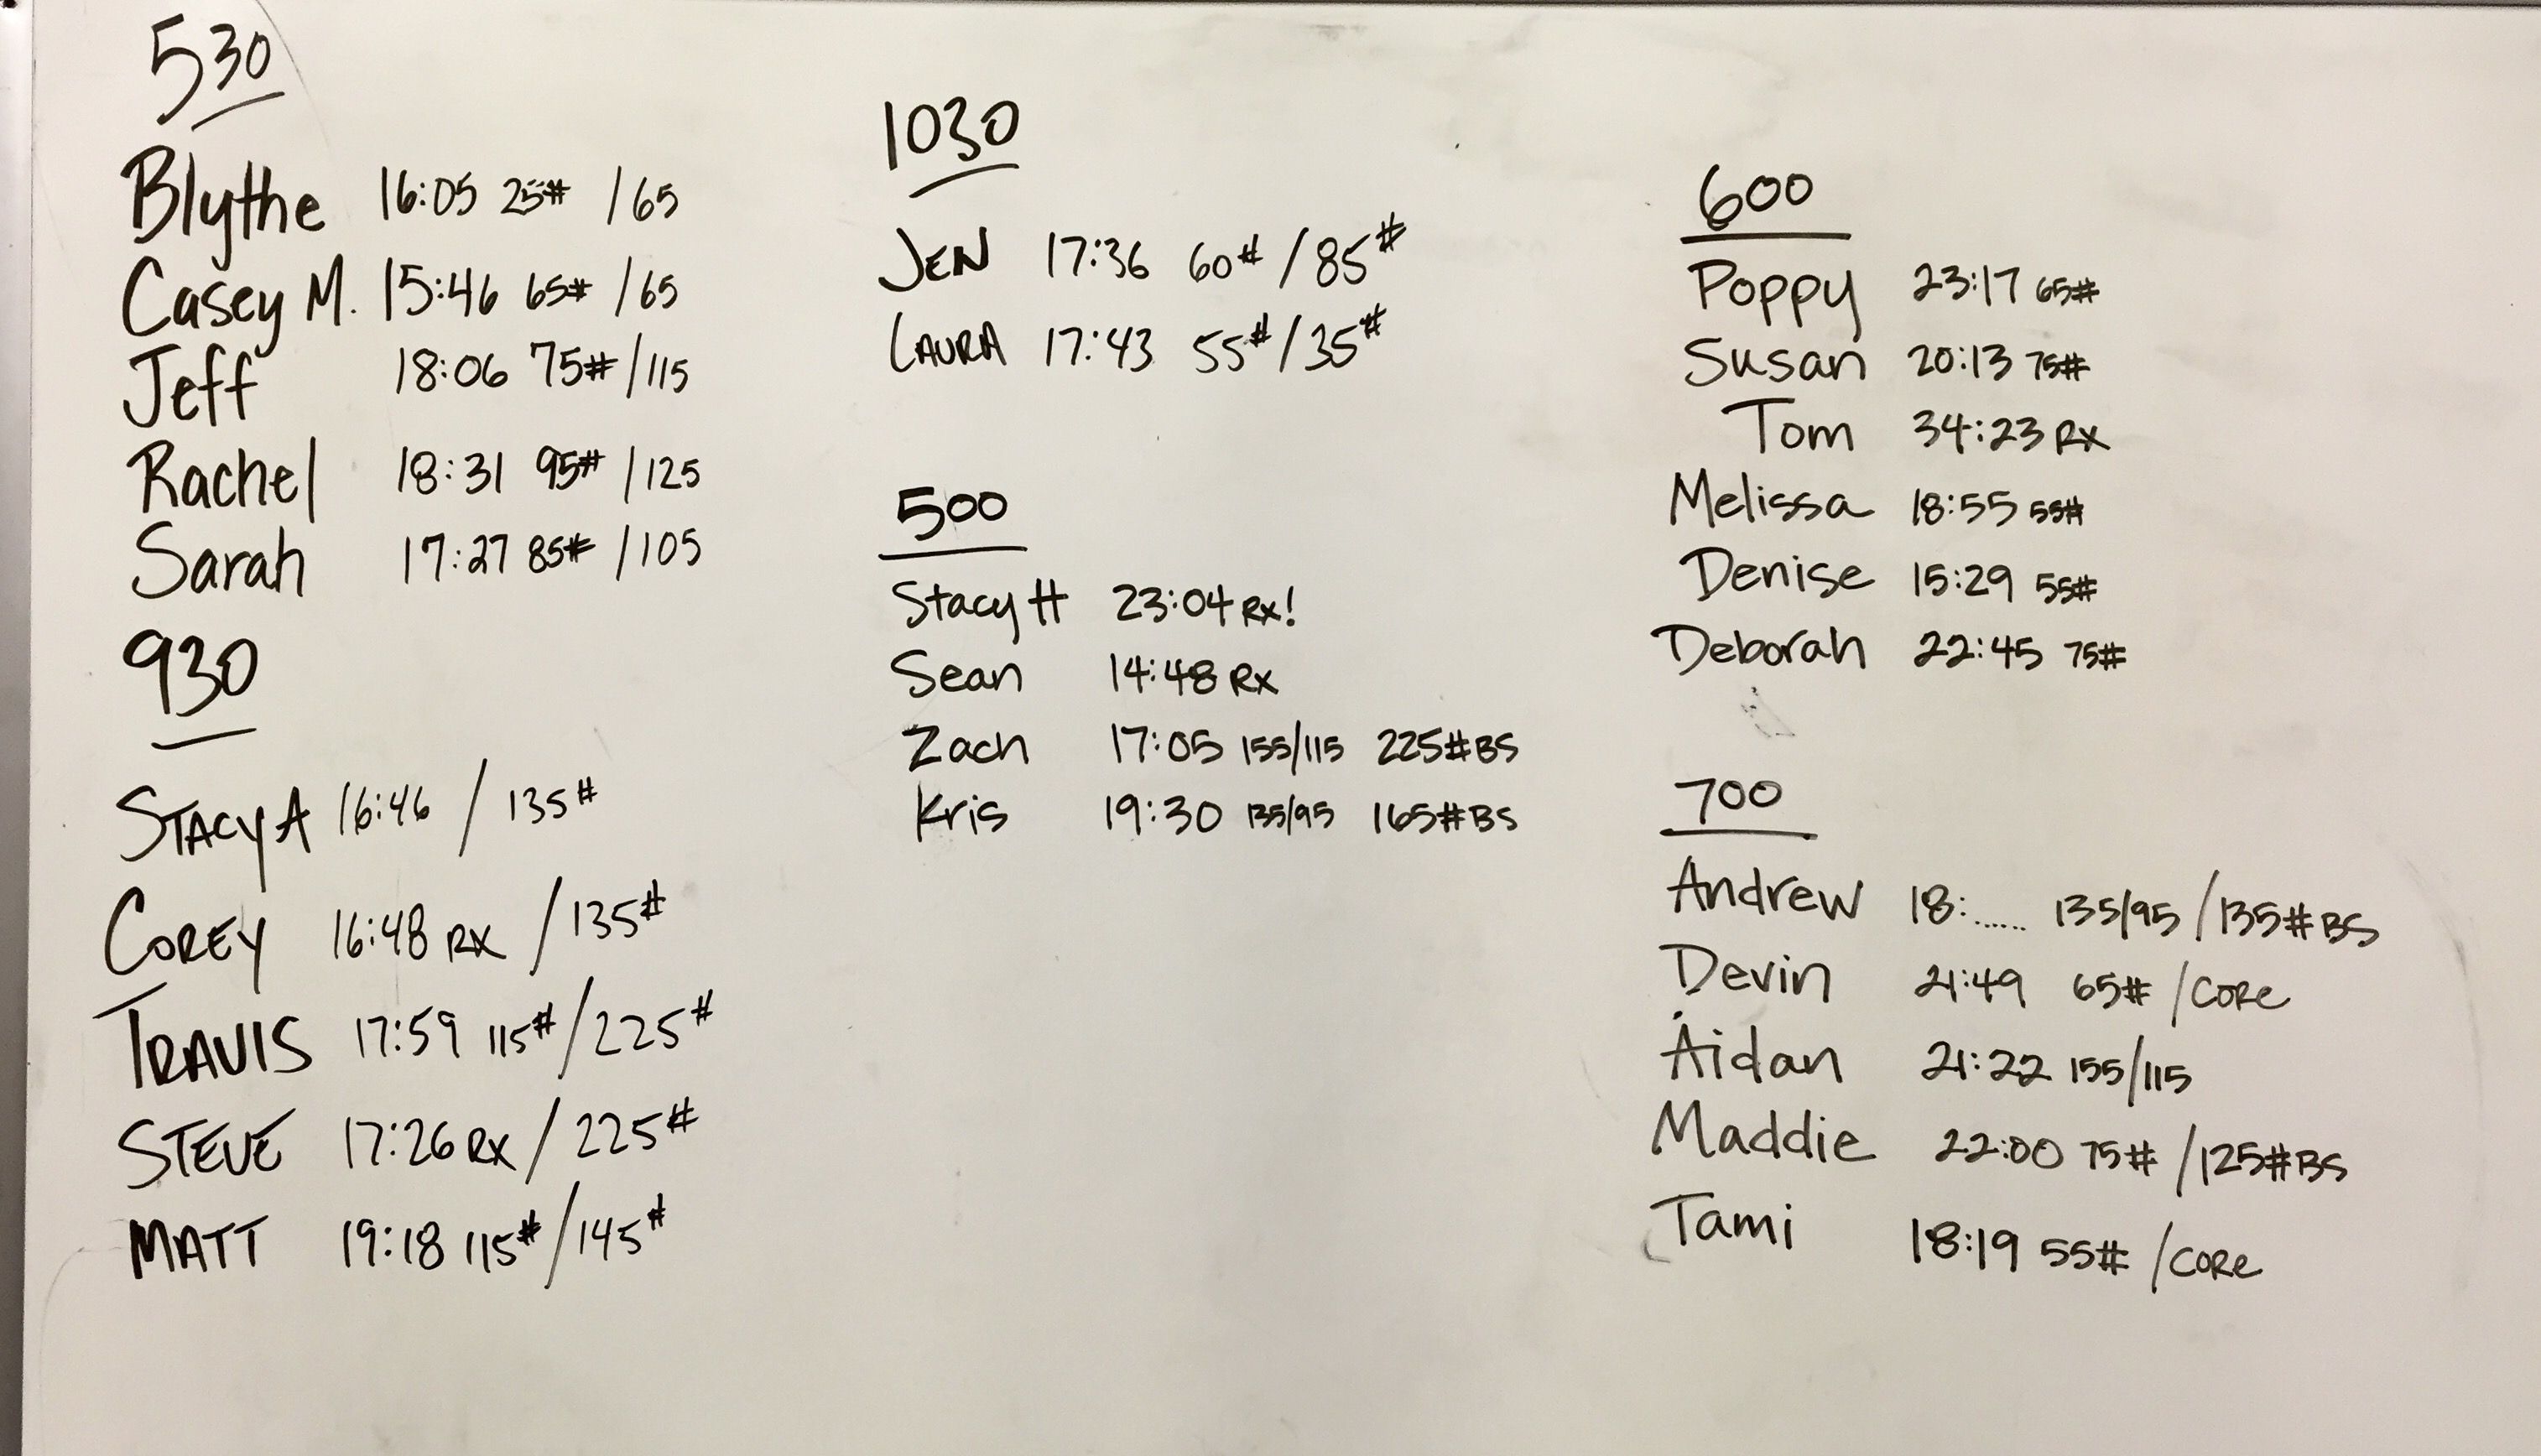 530
Blythe 16:05 25# /65
Casey M. 15:46 65# /65
Jeff 18:06 75# /115
Rachel 18:31 95# /125
Sarah 17:27 85# /105
930
STACY A 16:46 / 135#
COREY 16:48 RX / 135#
TRAVIS 17:59 115# / 225#
STEVE 17:26 RX / 225#
MATT 19:18 115# / 145#
1030
JEN 17:36 60# / 85#
LAURA 17:43 55# / 35#
500
Stacy H 23:04 RX!
Sean 14:48 RX
Zach 17:05 155/115 225# BS
Kris 19:30 135/95 165# BS
600
Poppy 23:17 65#
Susan 20:13 75#
Tom 34:23 RX
Melissa 18:55 55#
Denise 15:29 55#
Deborah 22:45 75#
700
Andrew 18:..... 135/95 /135# BS
Devin 21:49 65# /CORE
Aidan 21:22 155/115
Maddie 22:00 75# /125# BS
Tami 18:19 55# /CORE